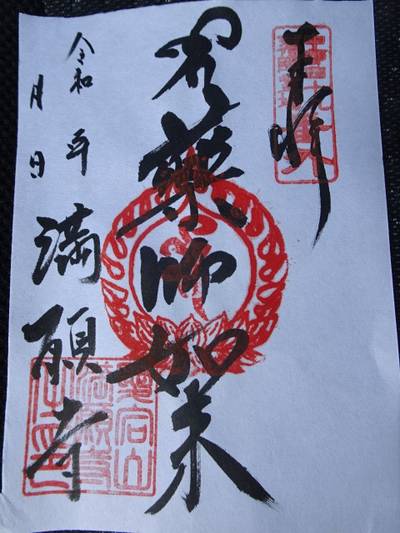 奉拝
薬師如来
令和 年
月 日
満願寺